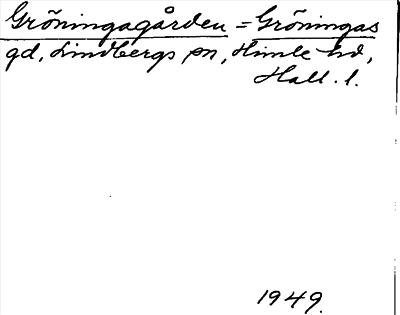 Gröningagården = Gröningas
gd, Lindbergs sn, Himle hd,
Hall. l.
1949.